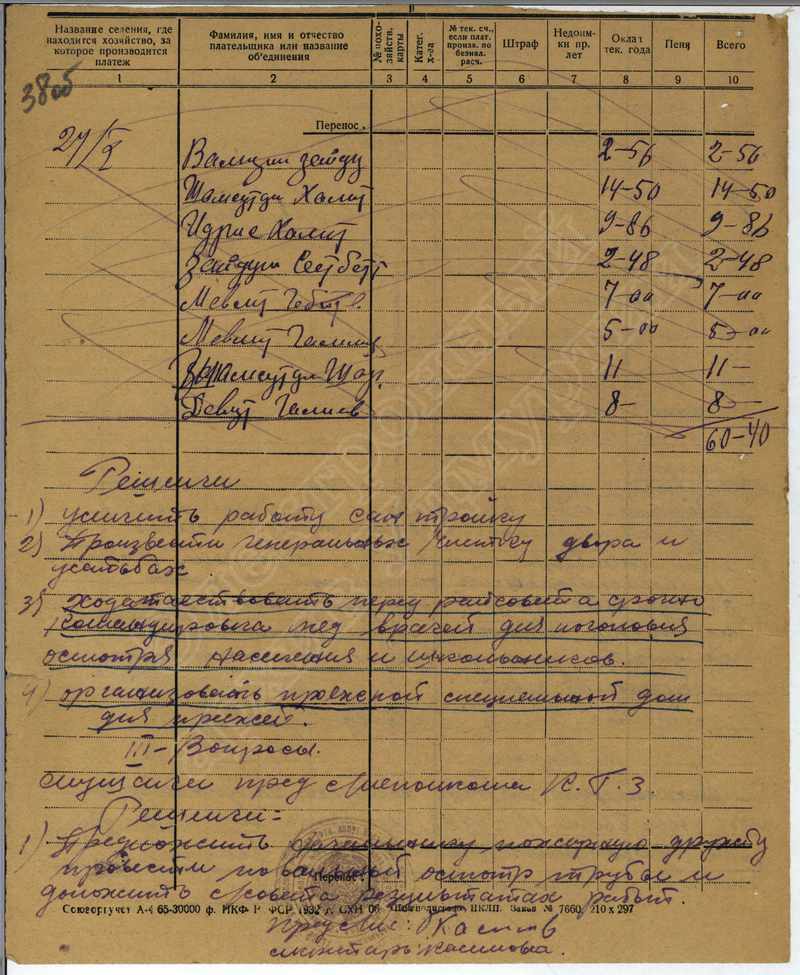 Название селения, где находится хозяйство, за которое производится платеж
Фамилия, имя и отчество плательщика или название об'единения
№ похозяйств. карты
Катег. х-ва
№ тек. сч., если плат. произв. по безнал. расч.
Штраф
Недоимки пр. лет
Оклад тек. года
Пеня
Всего
1 2 3 4 5 6 7 8 9 10
38об
Перенос .
27/X
2-56 2-56
Халит 14-50 14-50
Идрис Халит 9-86 9-86
2-48 2-48
Мевлит 7-00 7-00
Мевлит 5-00 5-00
11 11-
Галиев 8- 8-
60-40
Решении
1) усилить работу сан тройку
2) Произвести генеральных чистку двора и
усатьбах
3) Ходатаествовать перед райсовета срочно
командировка мед врачей для поголовия
осмотря населения и школьников.
4) организовать проезжой специальный дом
для приезжей.
III- Вопросы.
К. Г. З.
Решении:-
1) Предложить пожарную дружбу
провести осмотр трубы и
доложить совета результатах работ.
Перенос .
Союзоргучет А-4 65-30000 ф. НКФ РСФСР 1932 г. 7660. 210 х 297
Касимов
секретарь: Касимова.